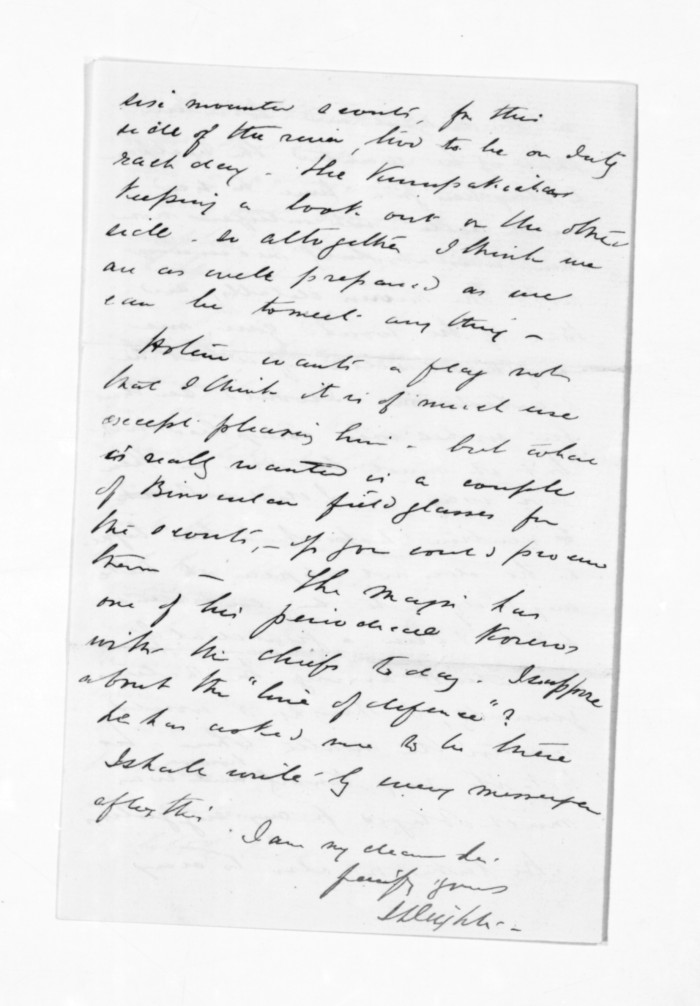 six mounted scouts, for this
side of the river, two to be on duty
each day - The
keeping a look out on the other
side - so altogether I think we
are as well prepared as we
can be to meet any thing -
wants a flag not
that I think it is of much use
except pleasing him - but what
is really wanted is a couple
of Binocular field glasses for
the scouts, - if you could procure
them - The Major has
one of his periodical Koreros
with the chiefs to day. I suppose
about the "line of defence"?
he has asked me to be there
I shall write by every messenger
after this. I am my dear Sir
yours